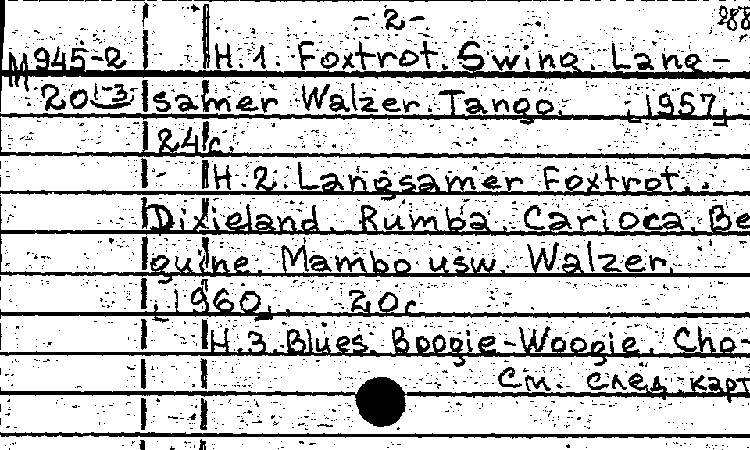 -2- 288
M 945-2 H.1. Foxtrot. Swing. Lang-
20 1-3 samer Walzer. Tango. [1957]
24 c.
H.2. Langsamer Foxtrot.
Dixieland. Rumba. Carioca. Be
guine. Mambo usw. Walzer.
[1960]. 20 c
H.3. Blues. Boogie-Woogie. Cho-
См. след. карт